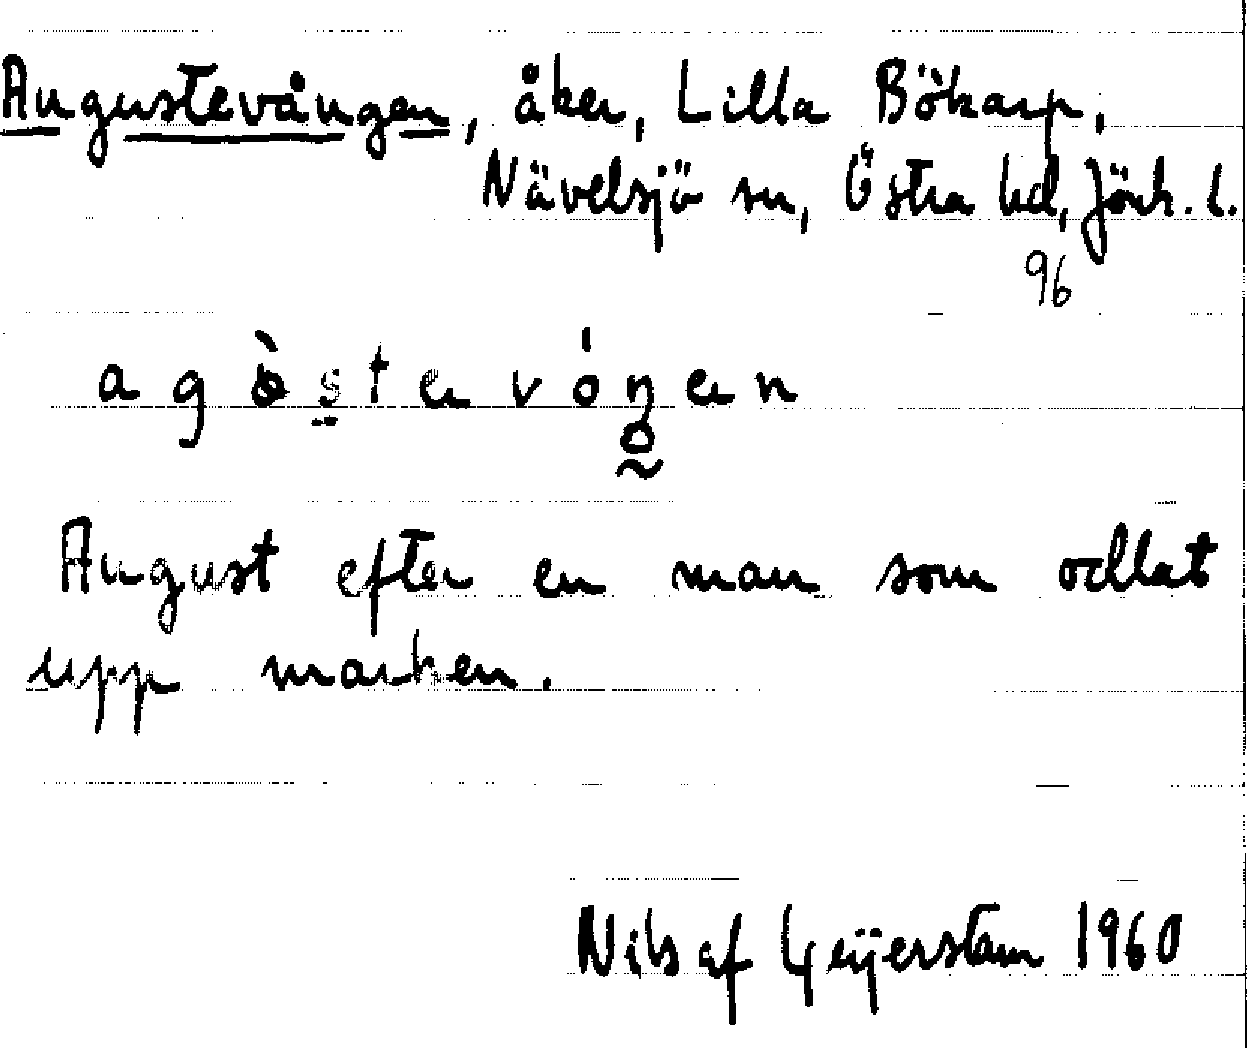 Augustevången, åker, Lilla Bökarp,
Nävelsjö sn, Östra hd, Jönk. l.
96
August efter en man som odlat
upp marken.
Nils af Geijerstam 1960